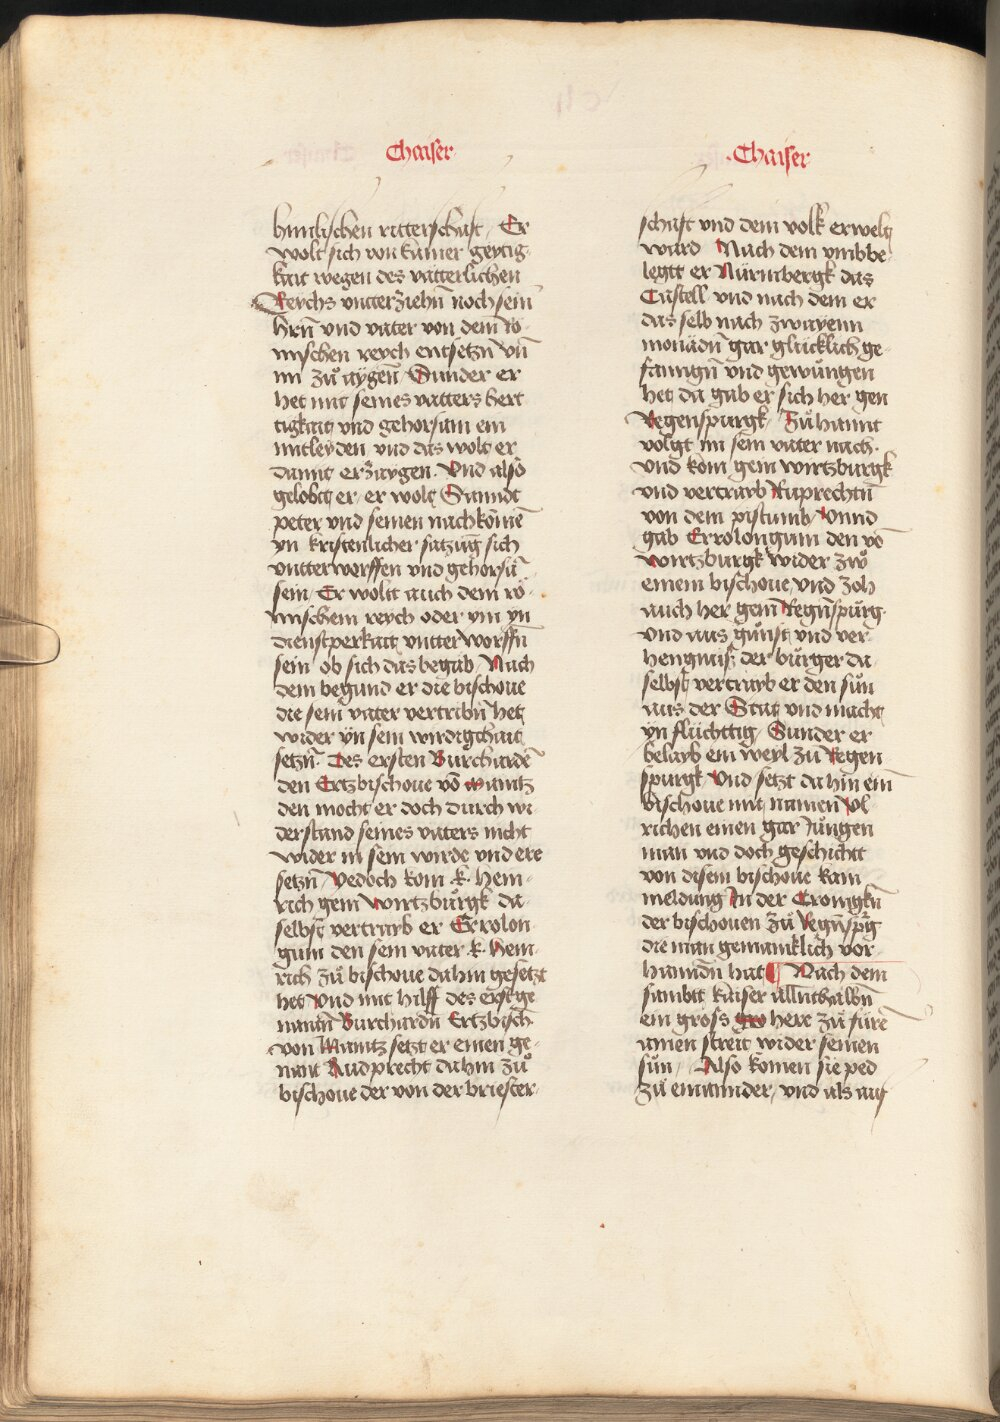 Chaiser
himlischen ritterschaft / Er
wolt sich von kainer geytig-
kait wegen des vatterlichen
Reychs vntterziehn̄ noch sein̄
hrn̄ vnd vater von dem rö-
mischen reych entsetzn̄ vn̄
im zuͦ aygen̄ / Sunder er
het mit seines vatters hert
tigkait vnd gehorsam ein
mitleyden vnd das wolt er
damit erzaygen. Vnd also
gelobt er / er wolt Sanndt
peter vnd seinen nachkömē
yn kristenlicher satzūg sich
vntterwerffen vnd gehorsā
sein / Er wolt auch dem rö-
mischem reych oder ym yn
dienstperkait vntterworffn̄
sein ob sich das begab / Nach
dem begund er die bischoue
die sein vater vertribn̄ het
wider yn sein wirdigchait
setzn̄. Des ersten Burchardē
den Ertzbischoue vō maintz
den mocht er doch durch wi-
derstand seines vaters nicht
wider in sein wirde vnd ere
setzn̄ / Yedoch kom .k. Hein-
rich gein wirtzbuͦrgk da-
selbst vertraib er Errolon-
gum den sein vater .k. Hein-
rich zuͦ bischoue dahin gesetzt
het Vnd mit hilff des erstge
nantn̄ Burchardn̄ Ertzbisch
von Maintz setzt er einen ge-
nant Rudprecht dahin zuͦ
bischoue der von der briester-
Chaiser
schaft vnd dem volk erwelt
ward / Nach dem vmbbe-
legtt er Nürmbergk das
Castell vnd nach dem er
das selb nach zwayenn
monadn̄ gar glücklich ge-
fanngn̄ vnd gewuͦngen
het / da gab er sich her gen
Regenspurgk / Zuͦhannt
volgt im sein vater nach.
vnd kom gein wirtzburgk
vnd vertraib Ruprechtn̄
von dem pistumb / Vnnd
gab Errolongum den vō
wirtzburgk wider zw
einem bischoue / vnd zoh
auch her gein Regn̄spurg.
vnd aus gunst vnd ver-
hengnüß der buͦrger da-
selbst vertraib er den suͦn
aus der Stat vnd macht
yn flüchttig / Sunder er
belaib ein weyl zu Regen
spurgk Vnd setzt da hin ein̄
bischoue mit namen Vl
richen einen gar Jungen
man vnd doch geschicht
von disem bischoue kain
meldung In der Cronigkn̄
der bischouen zuͦ Regn̄sprg
die man gemainklich vor-
hanndn̄ hat ¶ Nach dem
sambt kaiser allnthalbn̄
ein gross gro here zuͦ fürē
ainen streit wider seinen
suͦn / Also komen sie ped
zuͦ einannder / vnd als auf